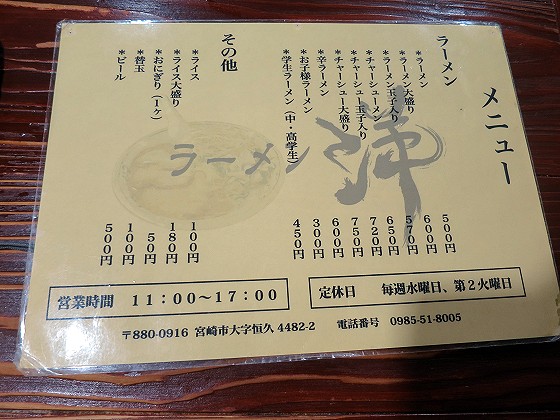 メニュー
ラーメン
*ラーメン 500円
*ラーメン大盛り 600円
*ラーメン玉子入り 570円
*チャーシューメン 650円
*チャーシュー玉子入り 720円
*チャーシュー大盛り 750円
*辛ラーメン 600円
*お子様ラーメン 300円
*学生ラーメン(中・高学生) 450円
その他
*ライス 100円
*ライス大盛り 180円
*おにぎり(1ヶ) 50円
*替玉 100円
*ビール 500円
ラーメン
営業時間 11:00〜17:00
定休日 毎週水曜日、第2火曜日
〒880-0916 宮崎市大字恒久 4482-2 電話番号 0985-51-8005